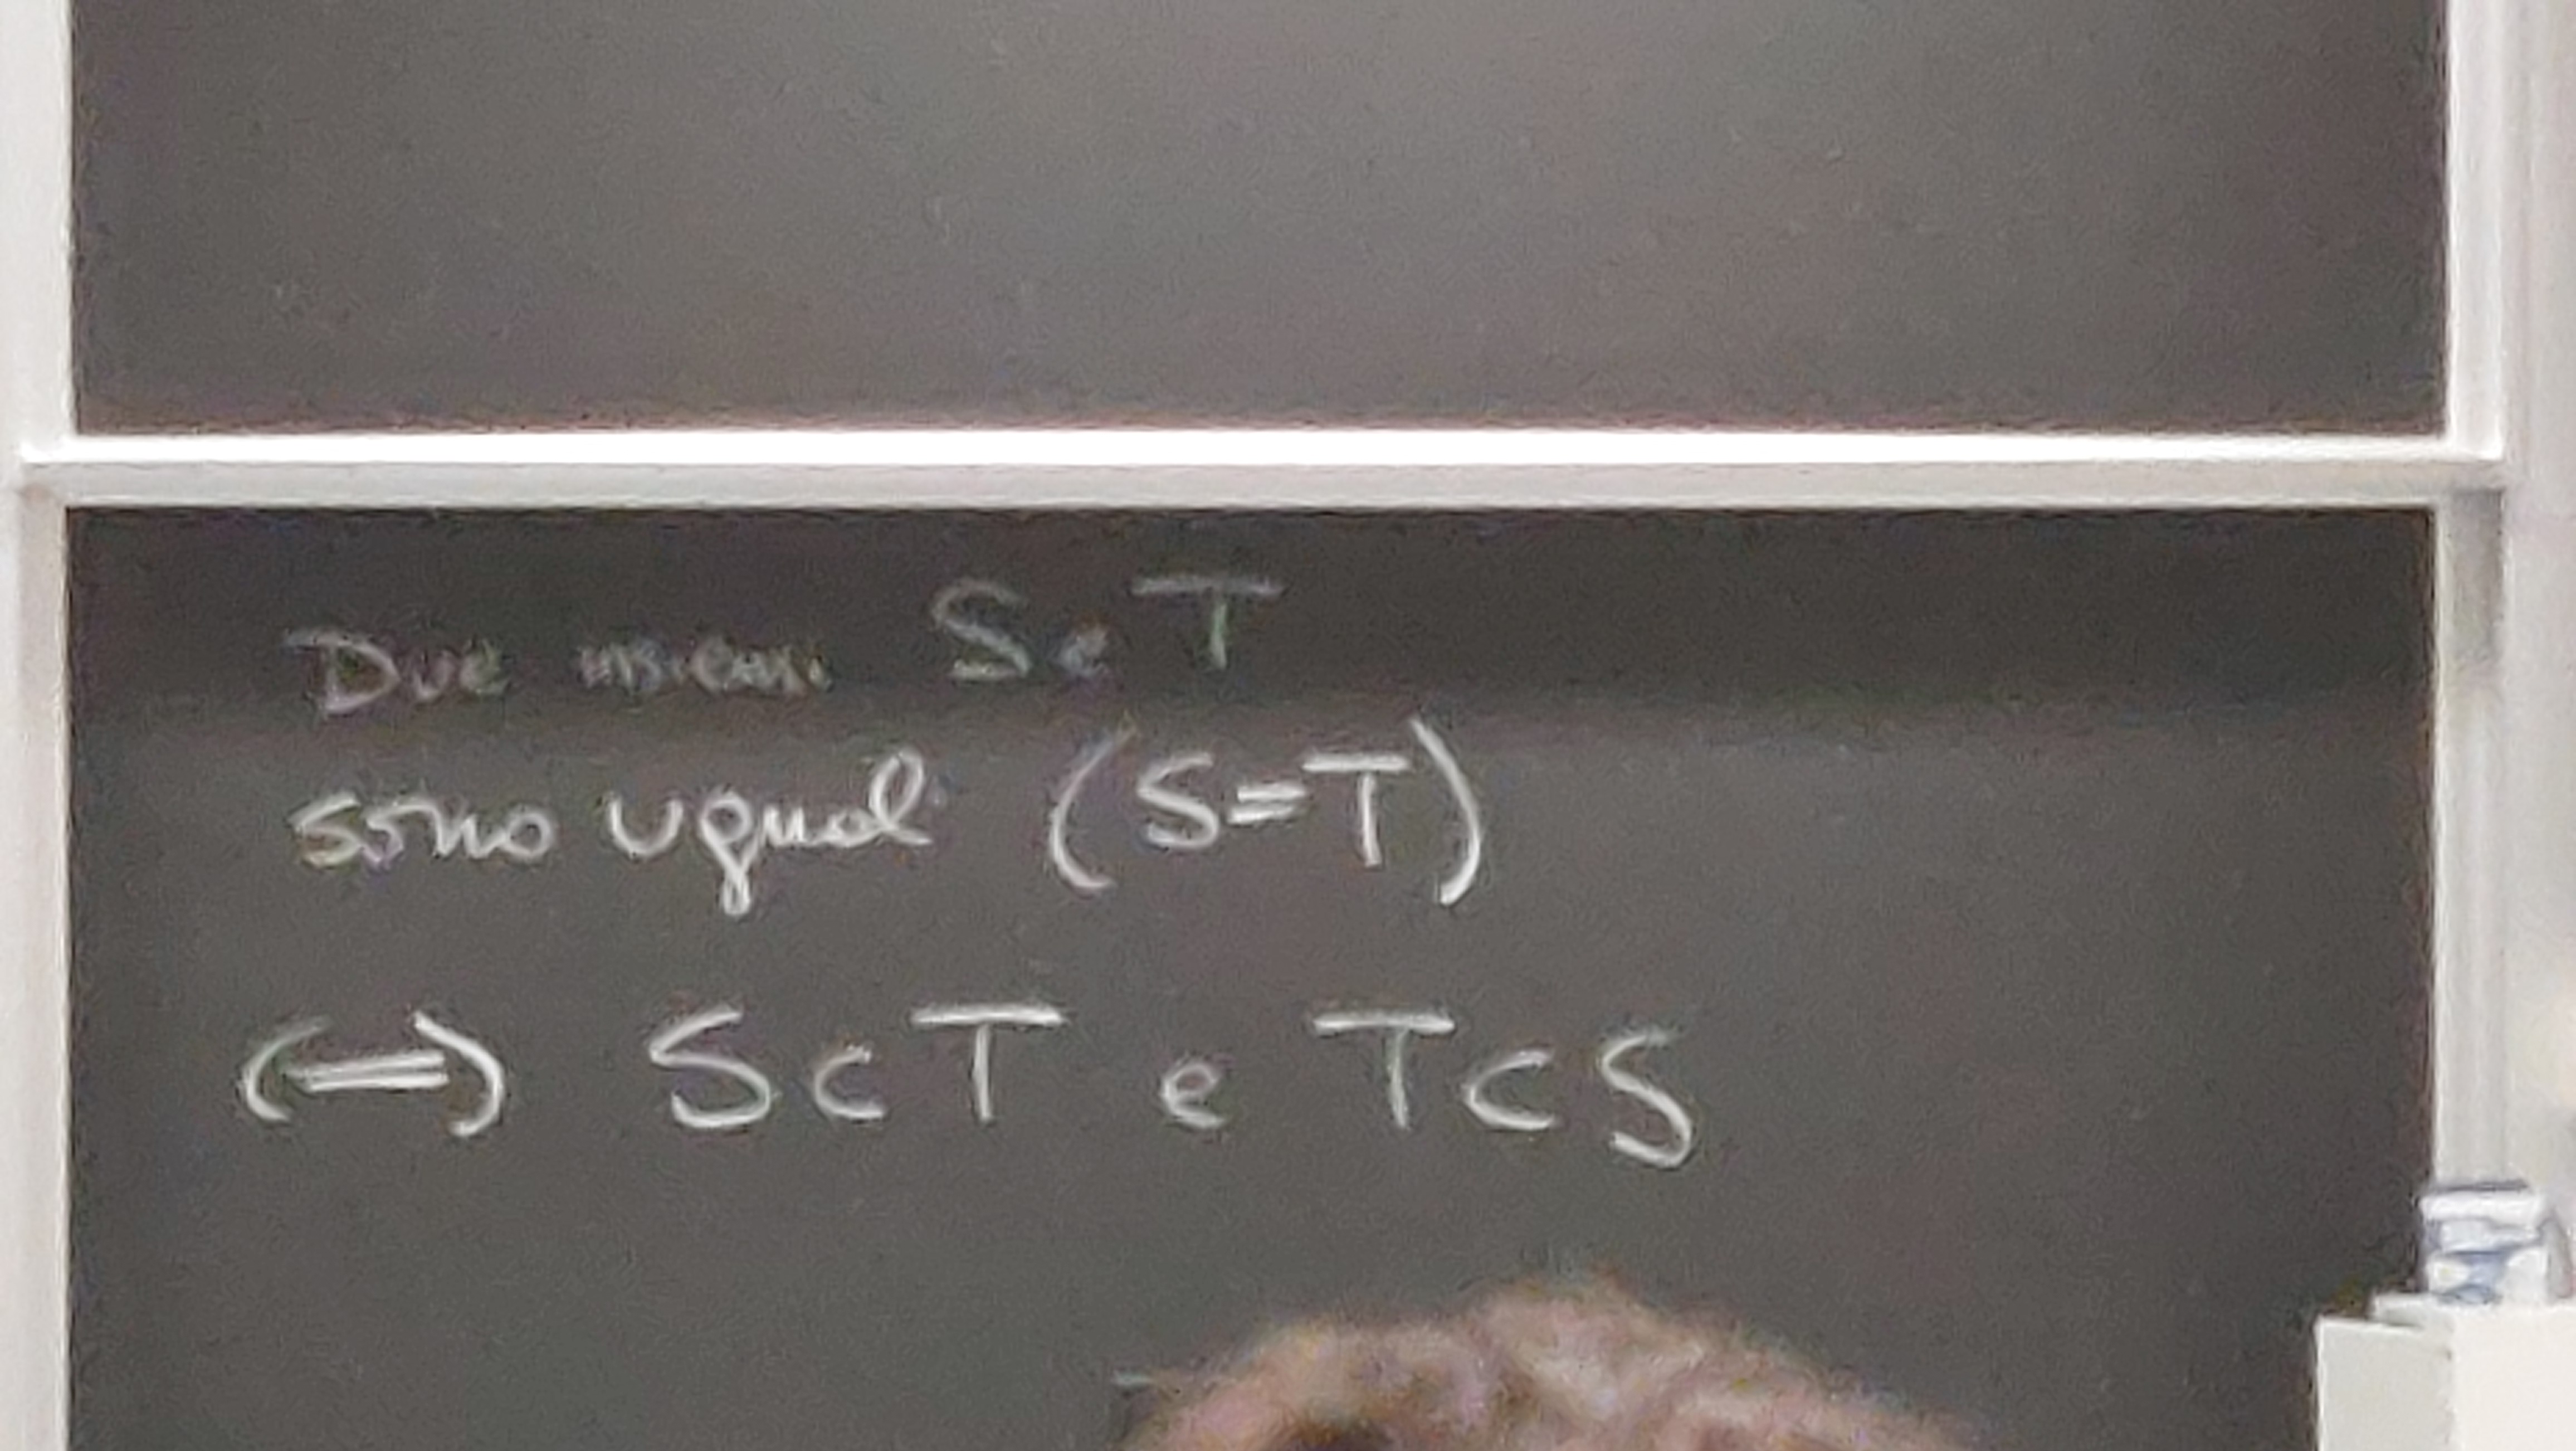 Due insiemi S e T
sono uguali (S=T)
⟺ S⊂T e T⊂S